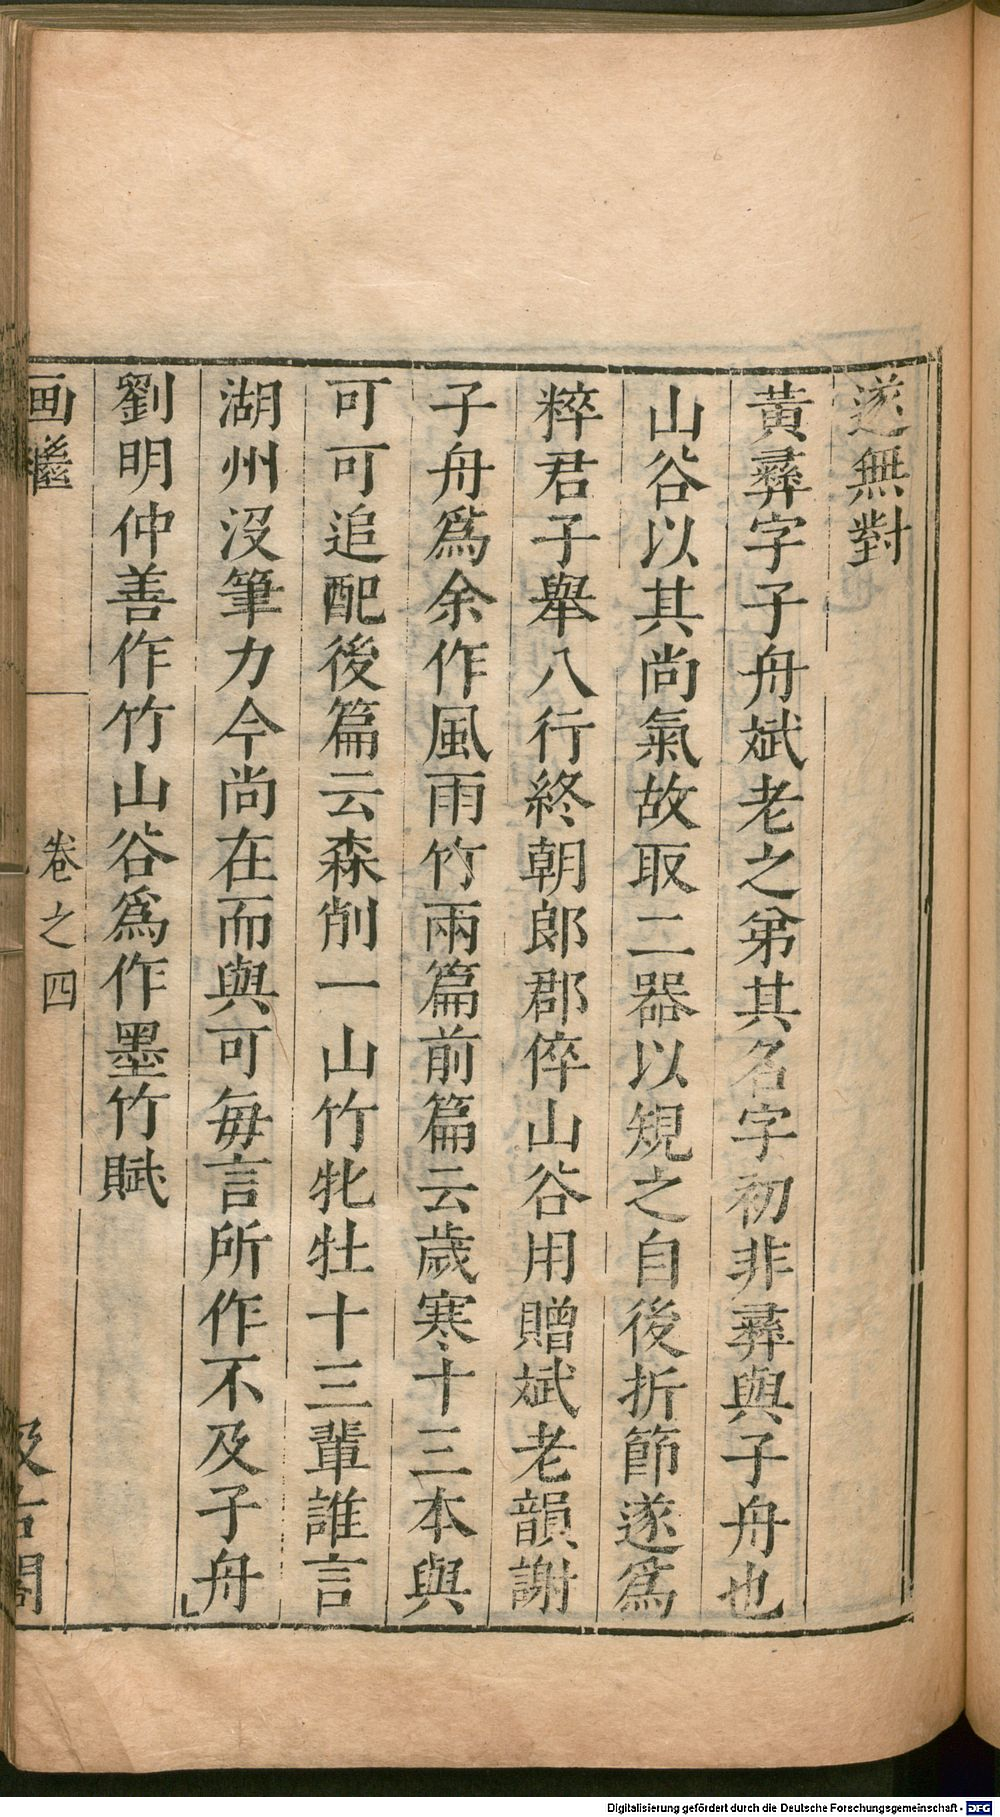 遂無對
黃彞字子舟斌老之弟其名字初非彞與子舟也
山谷以其尚氣故取二器以規之自後折節遂爲
粹君子舉八行終朝郞郡倅山谷用贈斌老韻謝
子舟爲余作風雨竹兩篇前篇云歲寒十三本與
可可追配後篇云森削一山竹牝牡十三輩誰言
湖州沒筆力今尚在而與可每言所作不及子舟
劉明仲善作竹山谷爲作墨竹賦
画繼 卷之四 汲古閣
Digitalisierung gefördert durch die Deutsche Forschungsgemeinschaft - DFG